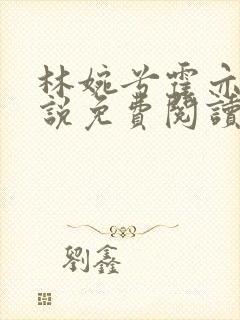 林婉兮霍亦
說免費閱讀
劉鑫